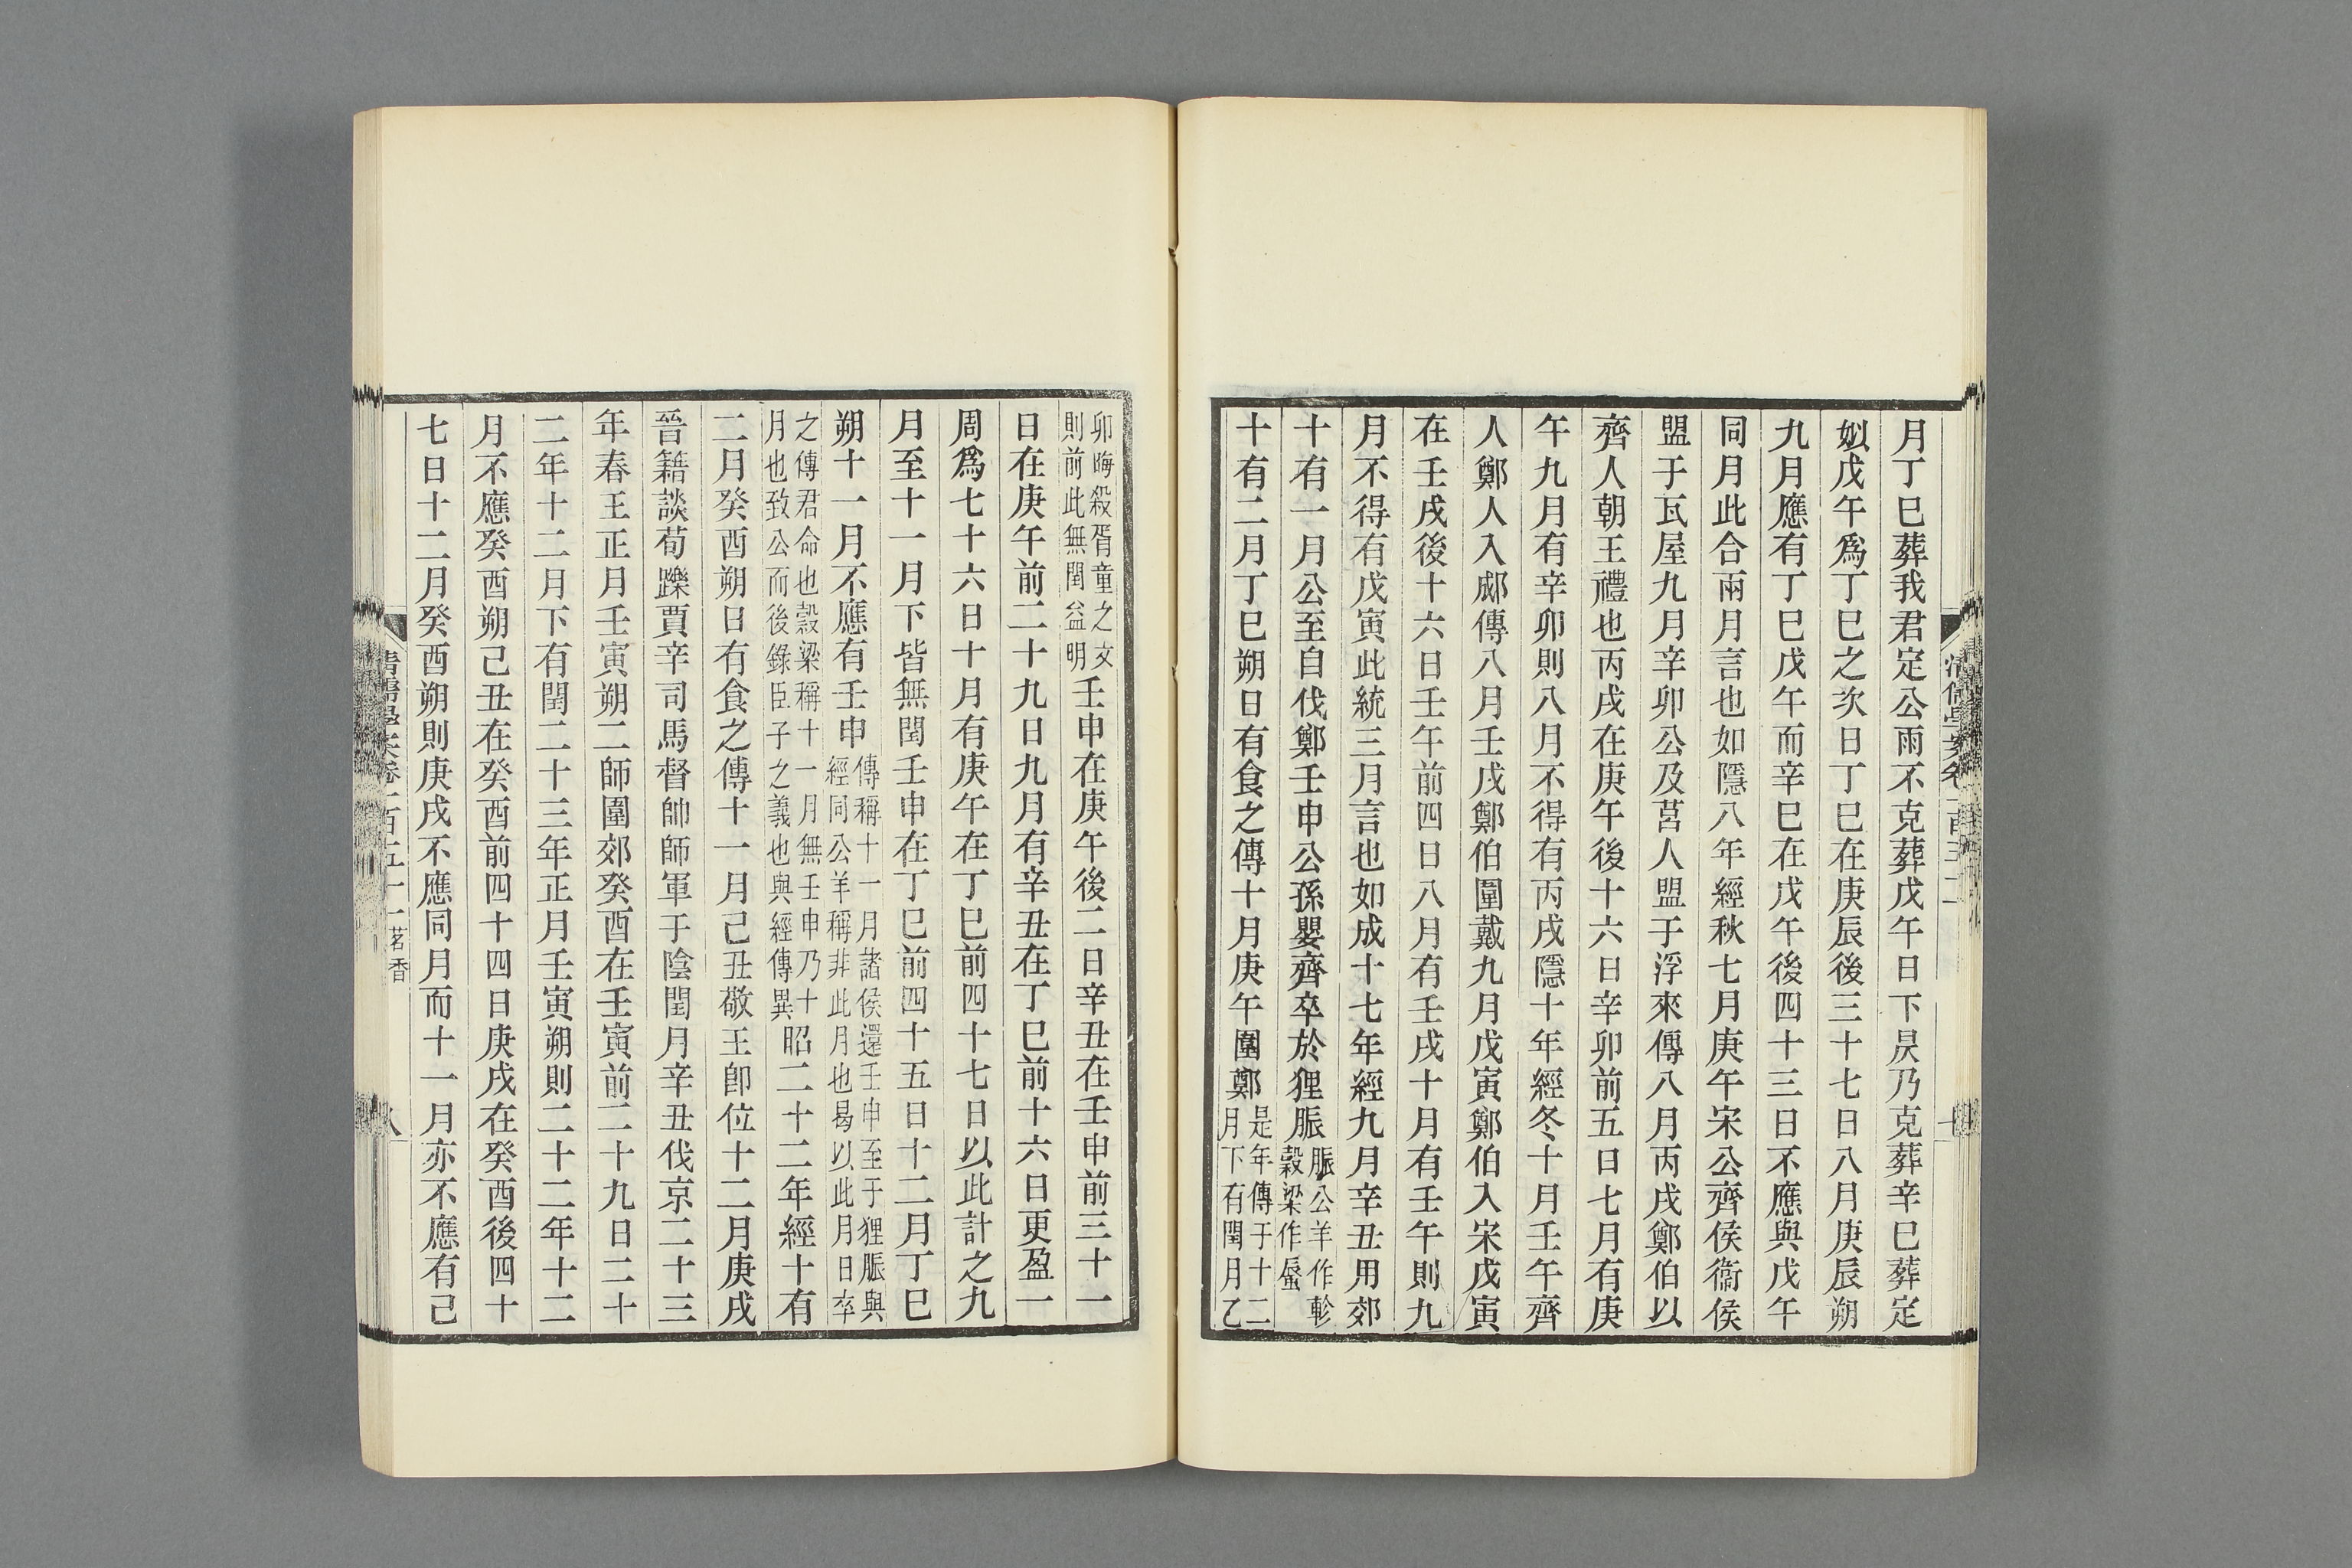 月丁巳葬我君定公雨不克葬戊午日下昃乃克葬辛巳葬定
姒戊午爲丁巳之次日丁巳在庚辰後三十七日八月庚辰朔
九月應有丁巳戊午而辛巳在戊午後四十三日不應與戊午
同月此合兩月言也如隱八年經秋七月庚午宋公齊侯衞侯
盟于瓦屋九月辛卯公及莒人盟于浮來傳八月丙戌鄭伯以
齊人朝王禮也丙戌在庚午後十六日辛卯前五日七月有庚
午九月有辛卯則八月不得有丙戌隱十年經冬十月壬午齊
人鄭人入郕傳八月壬戌鄭伯圍戴九月戊寅鄭伯入宋戊寅
在壬戌後十六日壬午前四日八月有壬戌十月有壬午則九
月不得有戊寅此統三月言也如成十七年經九月辛丑用郊
十有一月公至自伐鄭壬申公孫嬰齊卒於狸脤脤公羊作軫
穀梁作蜃
十有二月丁巳朔日有食之傳十月庚午圍鄭是年傳于十二
月下有閏月乙
卯晦殺胥童之文
則前此無閏益明壬申在庚午後二日辛丑在壬申前三十一
日在庚午前二十九日九月有辛丑在丁巳前十六日更盈一
周爲七十六日十月有庚午在丁巳前四十七日以此計之九
月至十一月下皆無閏壬申在丁巳前四十五日十二月丁巳
朔十一月不應有壬申傳稱十一月諸侯還壬申至于狸脤與
經同公羊稱非此月也曷以此月日卒
之傳君命也穀梁稱十一月無壬申乃十
月也致公而後錄臣子之義也與經傳異昭二十二年經十有
二月癸酉朔日有食之傳十一月己丑敬王卽位十二月庚戌
晉籍談荀躒賈辛司馬督帥師軍于陰閏月辛丑伐京二十三
年春王正月壬寅朔二師圍郊癸酉在壬寅前二十九日二十
二年十二月下有閏二十三年正月壬寅朔則二十二年十二
月不應癸酉朔己丑在癸酉前四十四日庚戌在癸酉後四十
七日十二月癸酉朔則庚戌不應同月而十一月亦不應有己
清儒學案卷
茗香
八